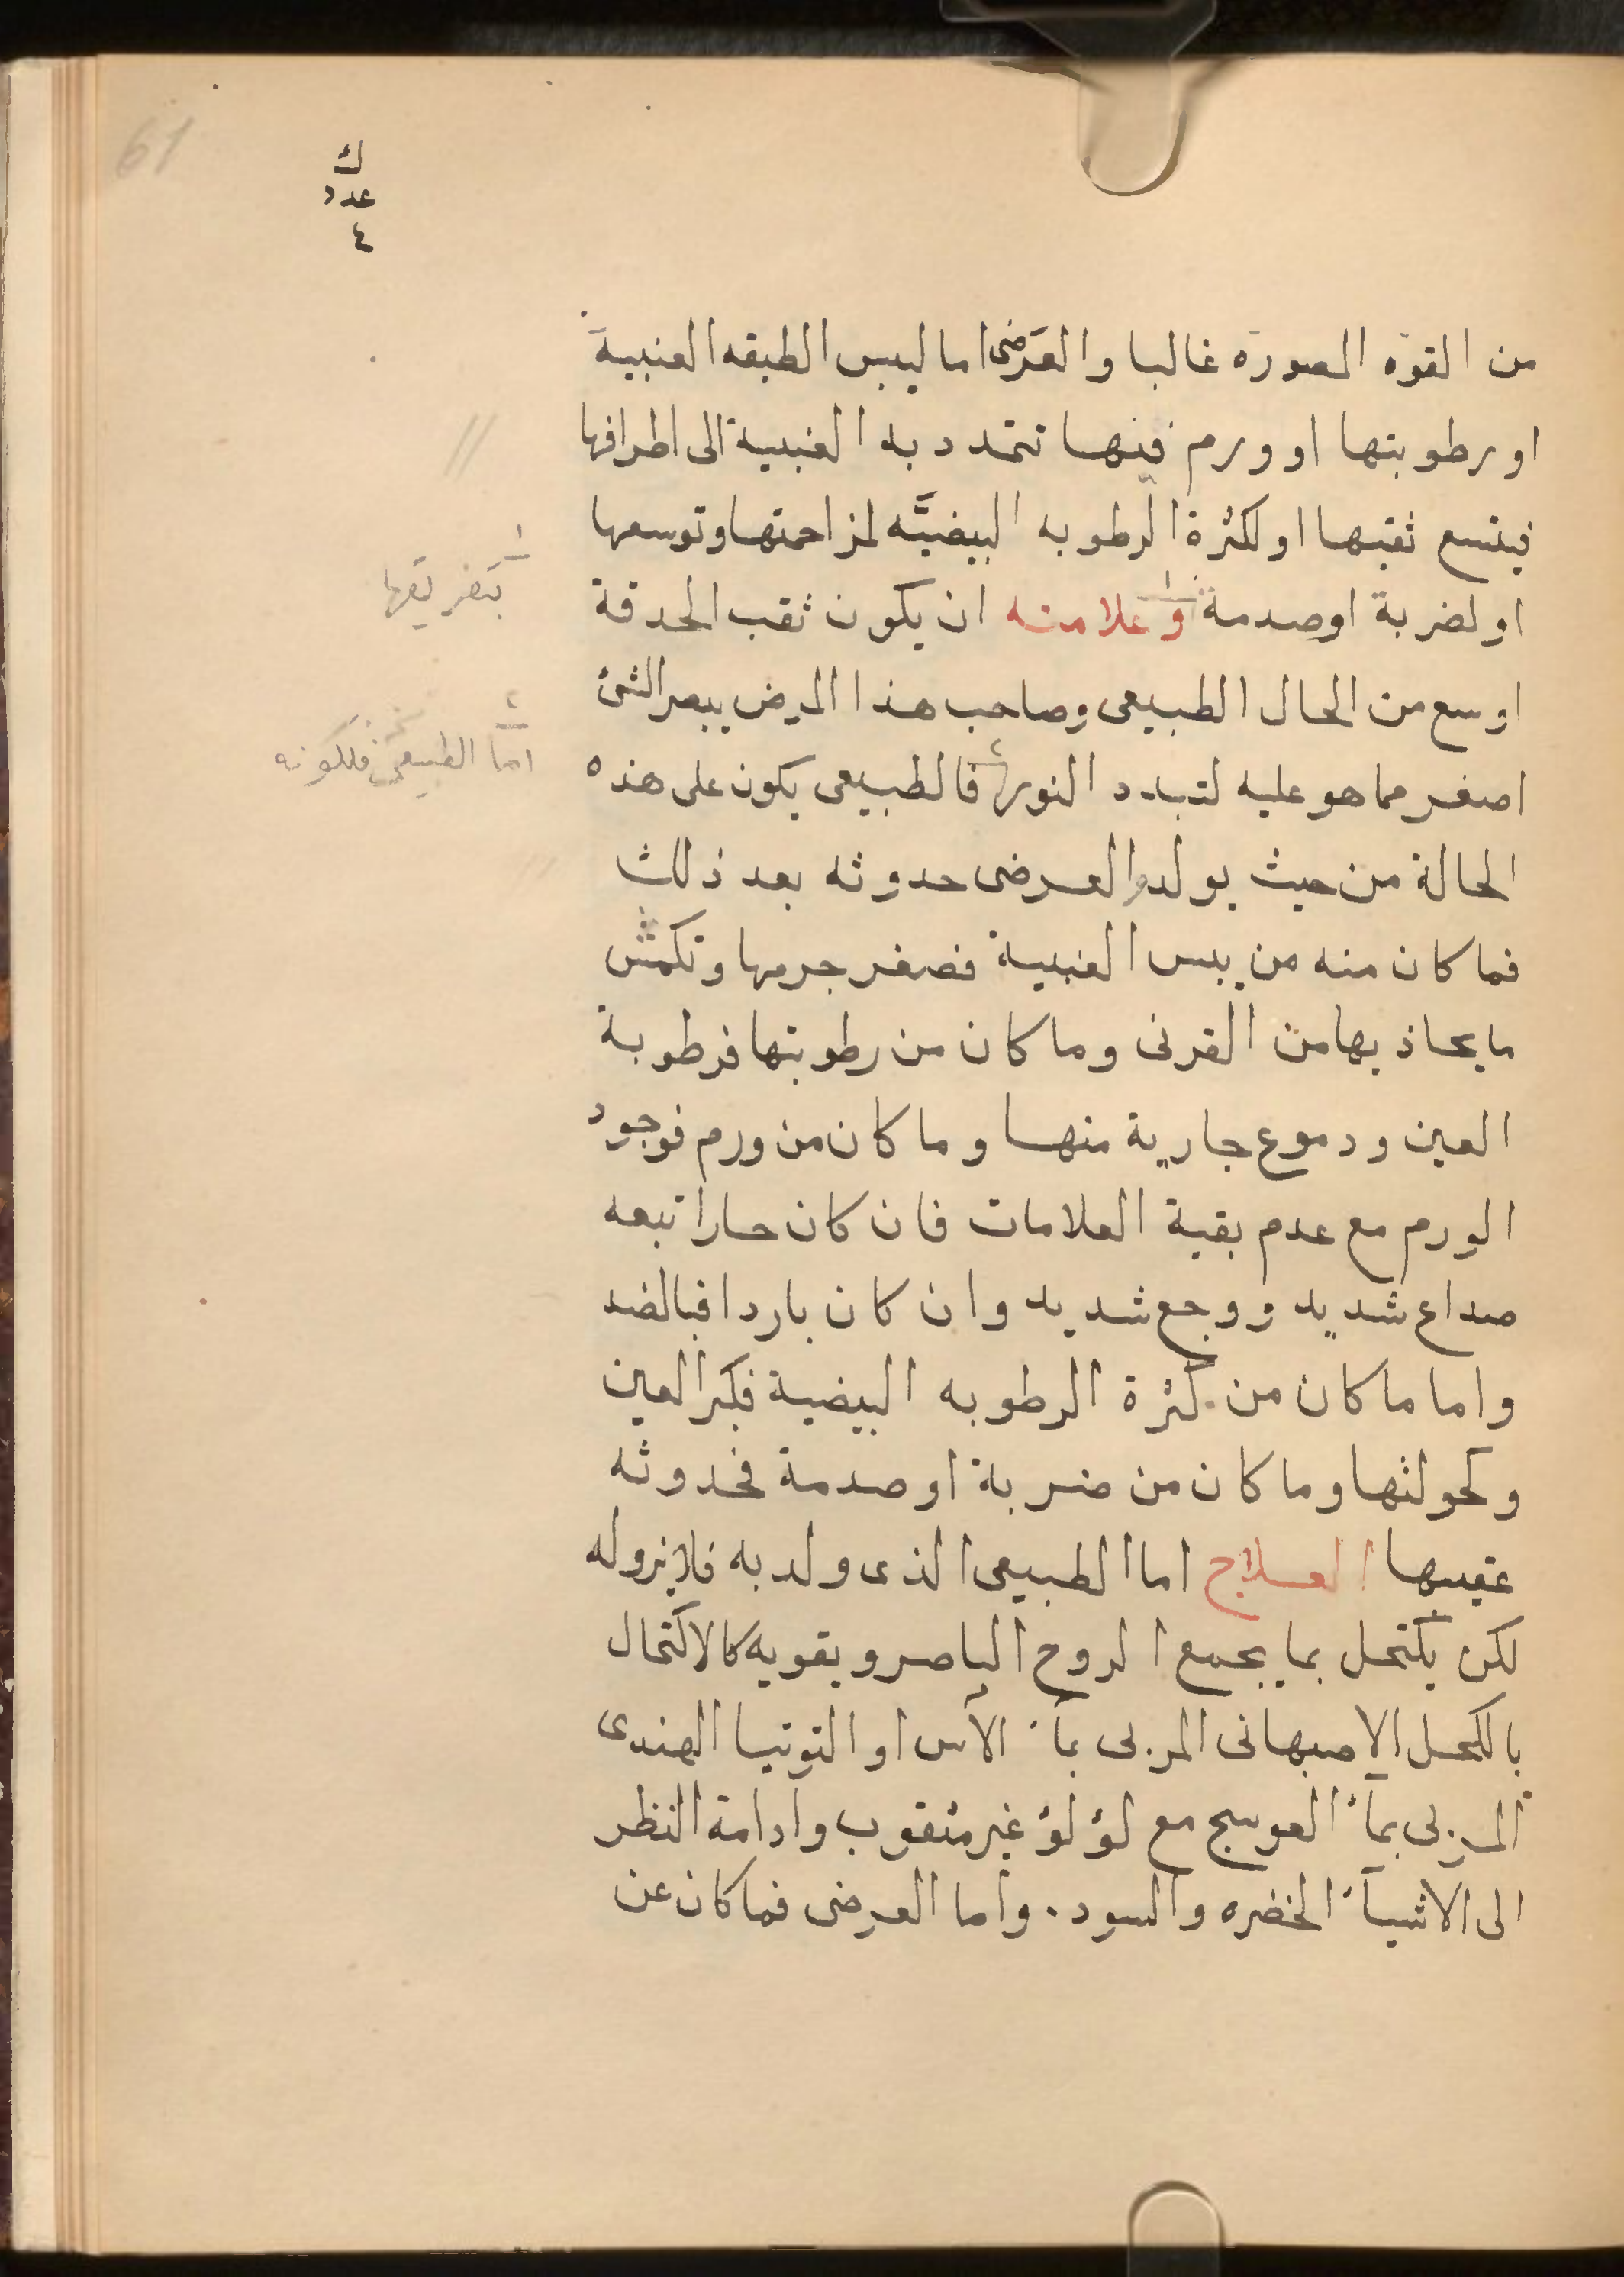 61
ك
عدد
٤
من القوه المصورة غالبا والعَرَضى اما ليبس الطبقه العنبية
او رطوبتها او ورم فيها تتمدد به العنبية الى اطرافها
فيتسع ثقبها او لكثرة الرطوبه البيضيَّه لمزاحمتها وتوسعها
١
بتفريقها
او لضربة او صدمة ١ وعلامته ان يكون ثقب الحدقة
اوسع من الحال الطبيعى وصاحب هذا المرض يبصر الشئ
٢
اما الطبيعى فلكونه
اصغر مما هو عليه لتبدد النور ٢ فالطبيعى يكون على هذه
الحالة من حيث يولد والعرضى حدوثه بعد ذلك
فما كان منه من يبس العنبية فصغر جرمها وتكمش
ما يحاذيها من القرنى وما كان من رطوبتها فرطوبة
العين ودموع جارية منها وما كان من ورم فوجود
الورم مع عدم بقية العلامات فان كان حارا تبعه
صداع شديد ووجع شديد وان كان باردا فبالضد
واما ما كان من كثرة الرطوبه البيضية فكبر العين
وكحولثها وما كان من ضربة او صدمة فحدوثه
عقيبها العلاج اما الطبيعى الذى ولد به فلا بروله
لكن يكتحل بما يجمع الروح الباصر ويقويه كالاكتحال
بالكحل الاصبهانى المربى بمآء الآس او التوتيا الهندى
المربى بمآء العوسج مع لؤلؤ غير مثقوب وادامة النظر
الى الاشيآء الخضره والسود . واما العرضى فما كان عن